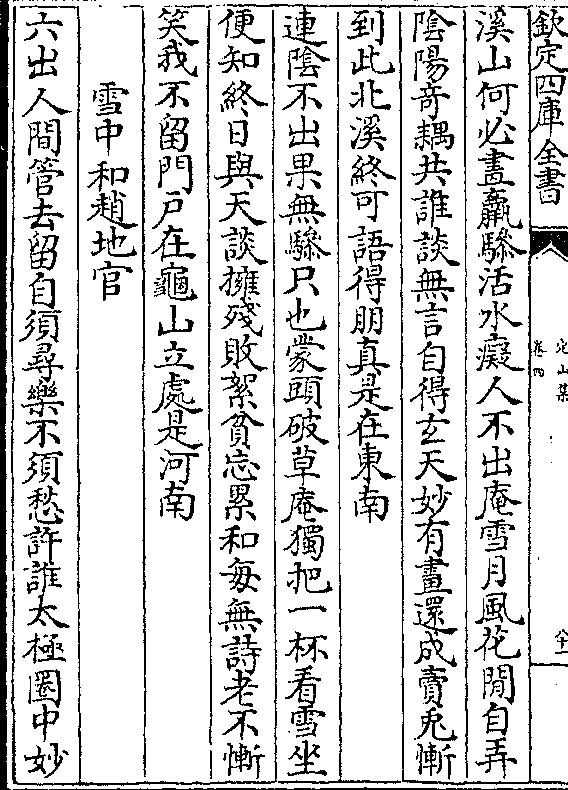 欽定四庫全書
定山集
卷四
六十一
溪山何必畫贏驂活水癡人不出庵雪月風花閒自弄
陰陽竒耦共誰談無言自得玄天妙有畫還成賣兎慚
到此北溪終可語得朋真是在東南
連陰不出果無驂只也蒙頭破草庵獨把一杯看雪坐
便知終日與天談擁殘敗絮貧忘累和每無詩老不慚
笑我不留門户在龜山立處是河南
雪中和趙地官
六出人間管去留自須尋樂不須愁許誰太極圏中妙